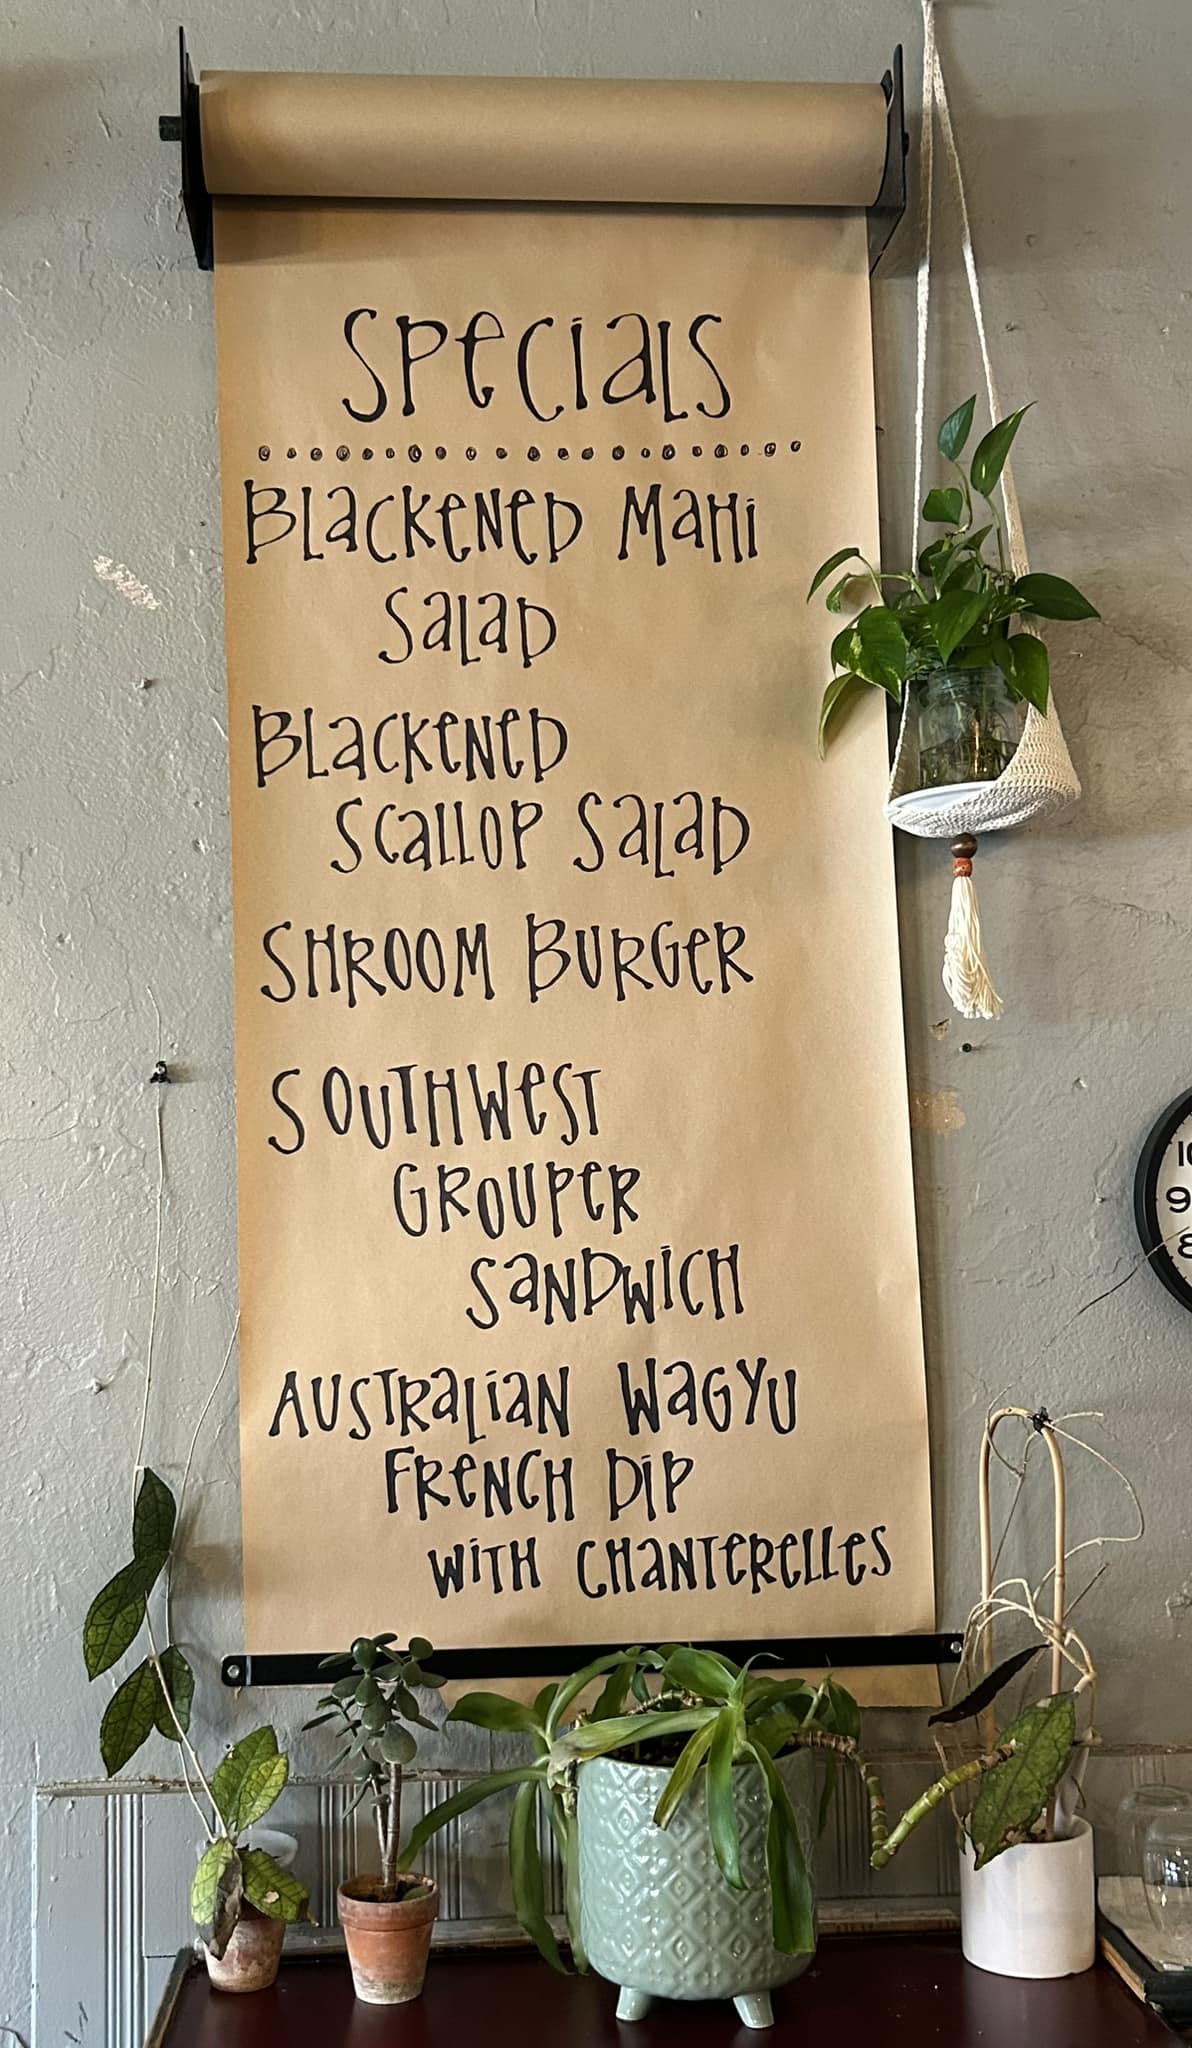 Specials
Blackened Mahi
Salad
Blackened
Scallop Salad
Shroom Burger
Southwest
Grouper
Sandwich
Australian Wagyu
French Dip
with Chanterelles
10
9
8